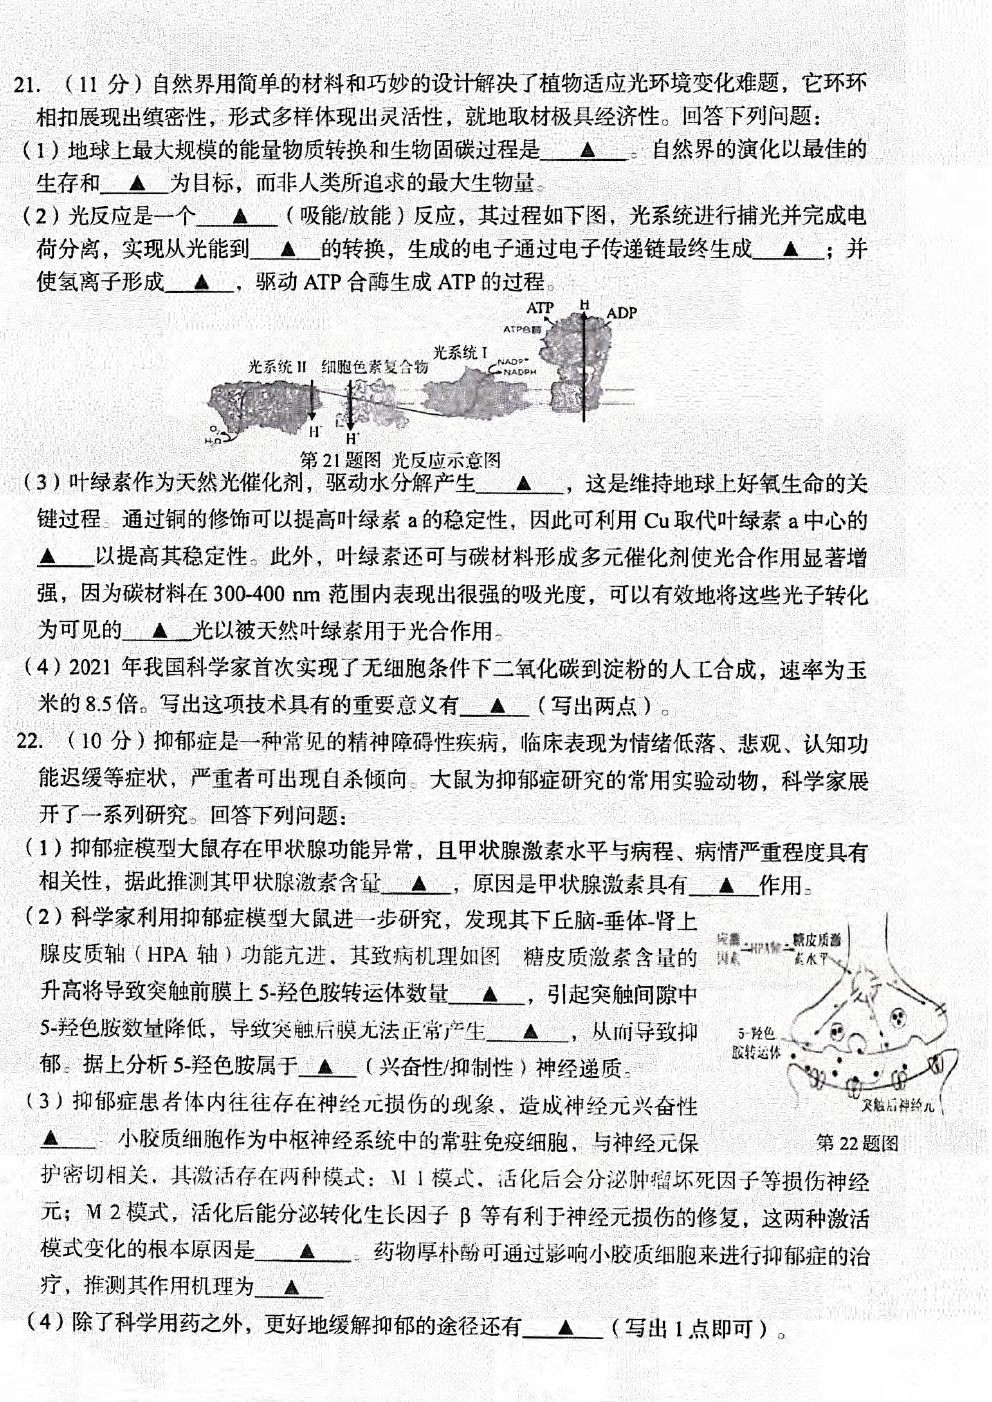 21. （11 分）自然界用简单的材料和巧妙的设计解决了植物适应光环境变化难题，它环环
相扣展现出缜密性，形式多样体现出灵活性，就地取材极具经济性。回答下列问题：
（1）地球上最大规模的能量物质转换和生物固碳过程是 ▲ 。自然界的演化以最佳的
生存和 ▲ 为目标，而非人类所追求的最大生物量。
（2）光反应是一个 ▲ （吸能/放能）反应，其过程如下图，光系统进行捕光并完成电
荷分离，实现从光能到 ▲ 的转换，生成的电子通过电子传递链最终生成 ▲ ；并
使氢离子形成 ▲ ，驱动 ATP 合酶生成 ATP 的过程。
ATP H ADP
ATP合酶
光系统 II 细胞色素复合物 光系统 I
NADP+
NADPH
O2
H2O
H+
H+
第 21 题图 光反应示意图
（3）叶绿素作为天然光催化剂，驱动水分解产生 ▲ ，这是维持地球上好氧生命的关
键过程。通过铜的修饰可以提高叶绿素 a 的稳定性，因此可利用 Cu 取代叶绿素 a 中心的
▲ 以提高其稳定性。此外，叶绿素还可与碳材料形成多元催化剂使光合作用显著增
强，因为碳材料在 300-400 nm 范围内表现出很强的吸光度，可以有效地将这些光子转化
为可见的 ▲ 光以被天然叶绿素用于光合作用。
（4）2021 年我国科学家首次实现了无细胞条件下二氧化碳到淀粉的人工合成，速率为玉
米的 8.5 倍。写出这项技术具有的重要意义有 ▲ （写出两点）。
22. （10 分）抑郁症是一种常见的精神障碍性疾病，临床表现为情绪低落、悲观、认知功
能迟缓等症状，严重者可出现自杀倾向。大鼠为抑郁症研究的常用实验动物，科学家展
开了一系列研究。回答下列问题：
（1）抑郁症模型大鼠存在甲状腺功能异常，且甲状腺激素水平与病程、病情严重程度具有
相关性，据此推测其甲状腺激素含量 ▲ ，原因是甲状腺激素具有 ▲ 作用。
（2）科学家利用抑郁症模型大鼠进一步研究，发现其下丘脑-垂体-肾上
腺皮质轴（HPA 轴）功能亢进，其致病机理如图 糖皮质激素含量的
升高将导致突触前膜上 5-羟色胺转运体数量 ▲ ，引起突触间隙中
5-羟色胺数量降低，导致突触后膜无法正常产生 ▲ ，从而导致抑
郁。据上分析 5-羟色胺属于 ▲ （兴奋性/抑制性）神经递质。
应激因素 HPA轴 糖皮质激素水平
5-羟色胺转运体
突触后神经元
第 22 题图
（3）抑郁症患者体内往往存在神经元损伤的现象，造成神经元兴奋性
▲ 小胶质细胞作为中枢神经系统中的常驻免疫细胞，与神经元保
护密切相关，其激活存在两种模式：M 1 模式，活化后会分泌肿瘤坏死因子等损伤神经
元；M 2 模式，活化后能分泌转化生长因子 β 等有利于神经元损伤的修复，这两种激活
模式变化的根本原因是 ▲ 。药物厚朴酚可通过影响小胶质细胞来进行抑郁症的治
疗，推测其作用机理为 ▲
（4）除了科学用药之外，更好地缓解抑郁的途径还有 ▲ （写出 1 点即可）。